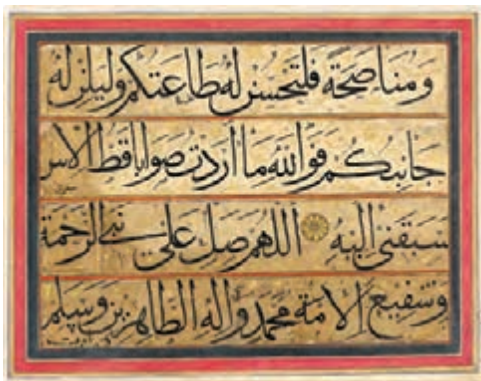 وَمُنَاصَحَةٍ فَلتَحسُن لَهُ طَاعَتكُم وَليلن لَهُ
جَانِبكُم فَوَاللهِ مَا اَرَدتُ صَوَابا قَطُّ اِلا
سَبَقَنى اِلَيهِ اَللهُمَّ صَلِّ عَلى نَبِىِّ الرَّحمَةِ
وَشَفِيعِ الاُمَّةِ مُحَمَّدٍ وَالِهِ الطَّاهِرِينَ وَسَلِّم